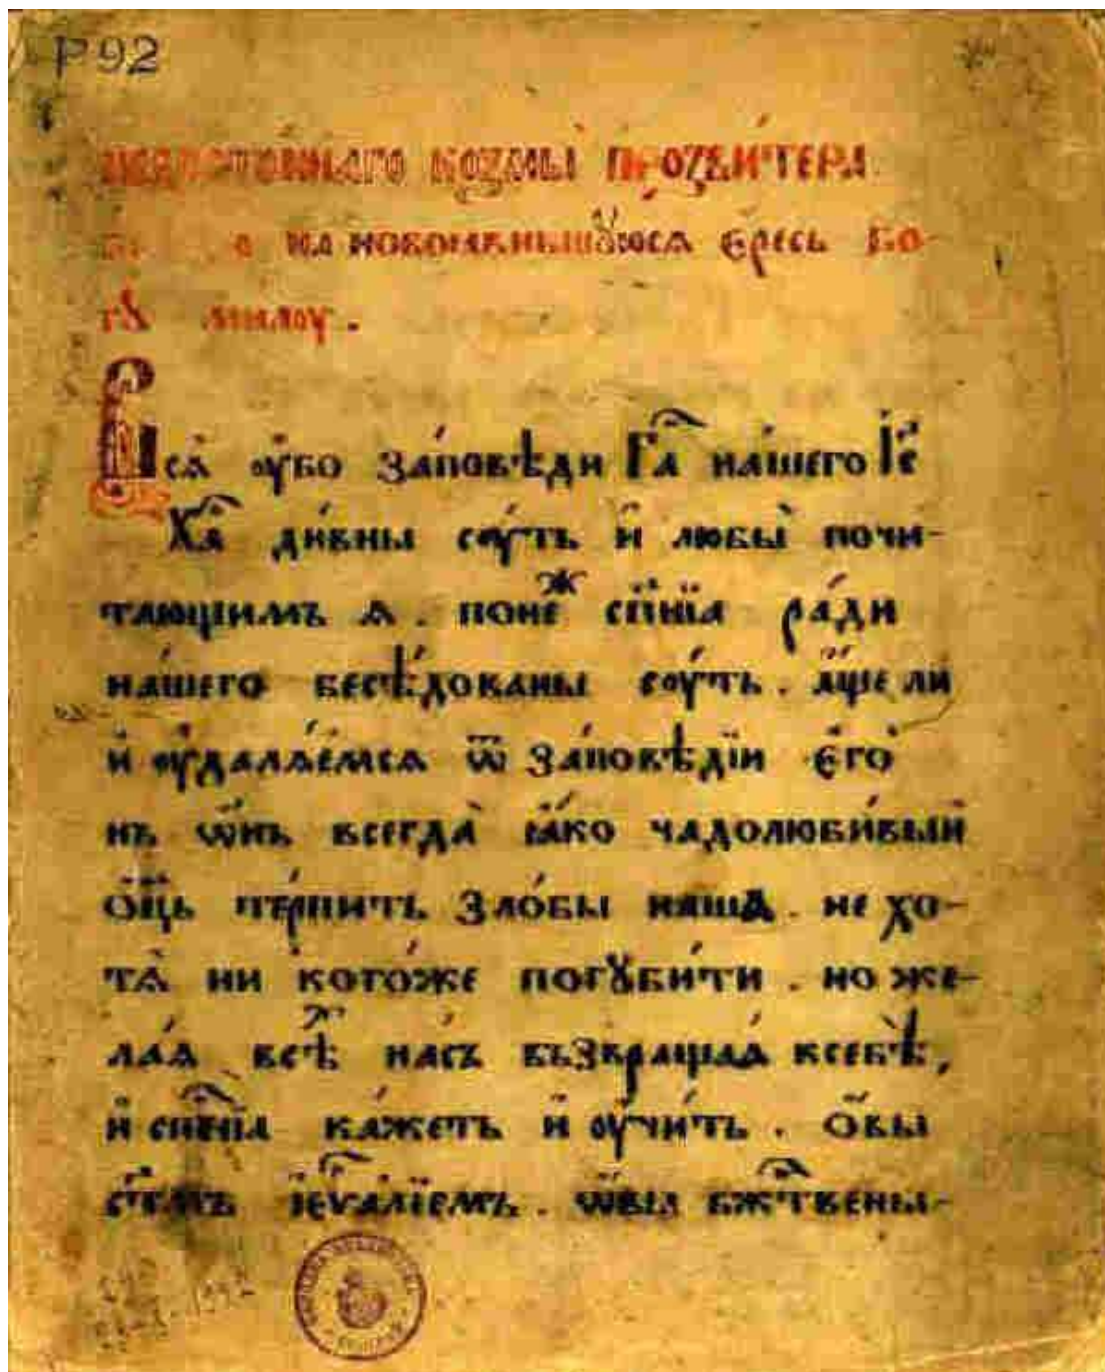 Р 92
недостойнаго козмы прозви́тера
на новоꙗвившꙋюсѧ є́ресь бо-
гꙋ милоу .
Всѧ̀ оу҆бо за́повѣди Гⷭ҇а на́шего І҆с҃
Хⷭ҇а ди́вны сѹ́ть и҆ любы̀ почи-
тающимъ ѧ . понеⷤ сп҃нїѧ ра́ди
на́шего бесѣ́дованы сѹ́ть . а҆́ще ли
и҆ оу҆далѧ́емсѧ ѿ за́повѣдїи є҆го̀
нъ ѡ҆́нъ всегда̀ ꙗ҆́ко чадолюби́вый
о҆ц҃ь те́рпитъ зло́бы наша . не хо-
тѧ̀ ни кого́же погꙋби́ти . но же-
ла́ѧ всѣⷯ на́съ възвраща́ѧ ксебѣ̀,
и҆ сп҃се́нїѧ ка́жетъ и҆ оу҆чи́тъ . о҆́вы
ст҃ымъ і҆еѵⷢ҇а́лїемъ . ѡ҆́вы бжⷭ҇твены-